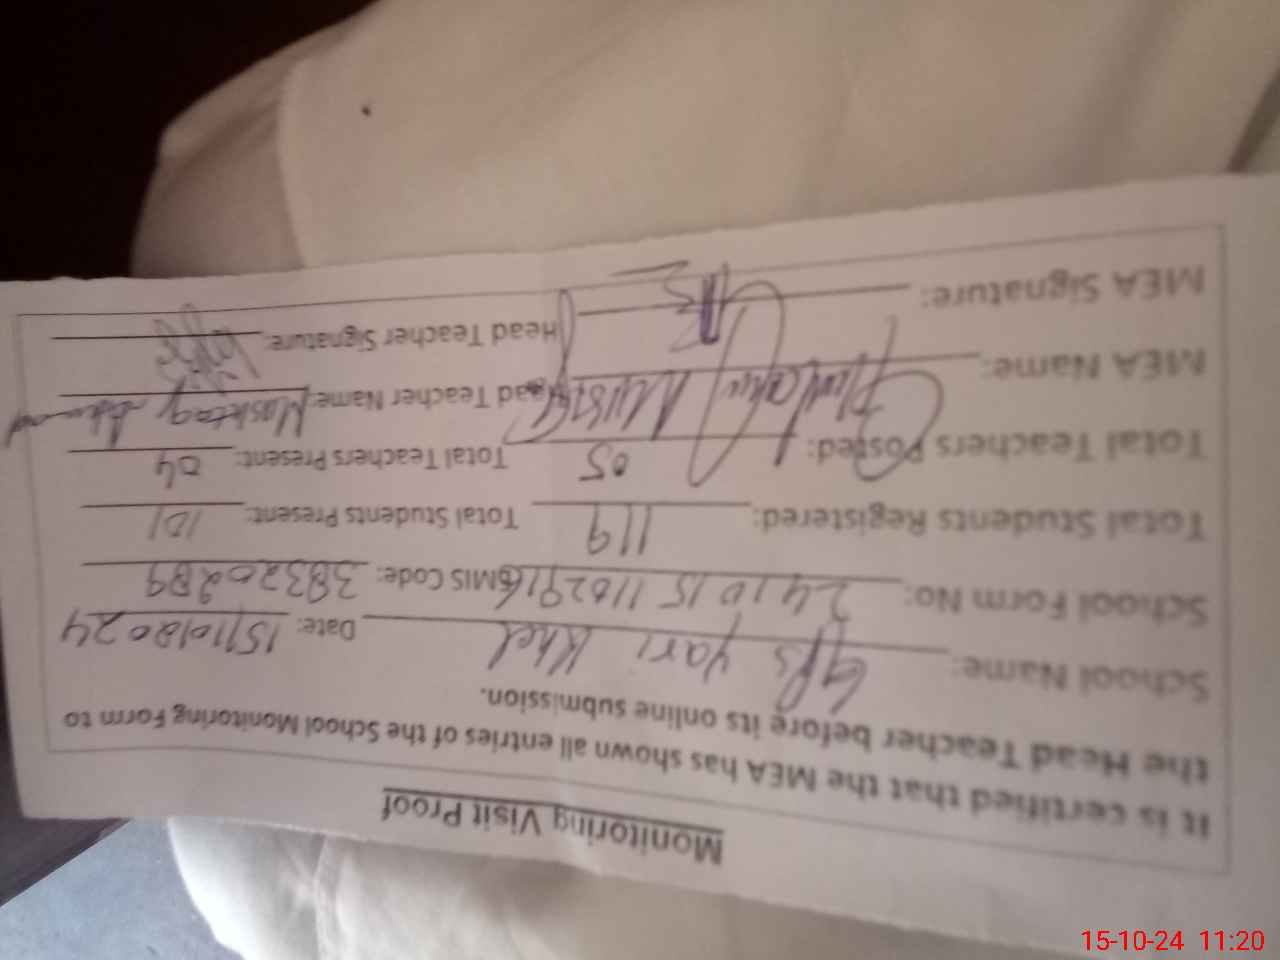 Monitoring Visit Proof
It is certified that the MEA has shown all entries of the School Monitoring Form to
the Head Teacher before its online submission.
School Name: GPS Yari Khel Date: 15/10/2024
School Form No: 24101511102916 EMIS Code: 38320289
Total Students Registered: 119 Total Students Present: 101
Total Teachers Posted: 05 Total Teachers Present: 04
MEA Name: Head Teacher Name:
MEA Signature: Head Teacher Signature:
15-10-24 11:20